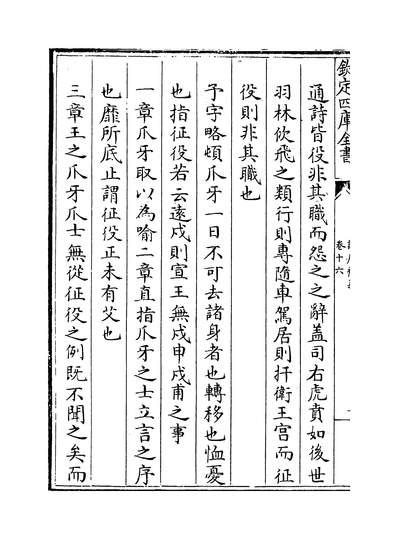 欽定四庫全書
卷十六
通詩皆役非其職而怨之之辭盖司右虎賁如後世
羽林佽飛之類行則專隨車駕居則扞衛王宫而征
役則非其職也
予字略頓爪牙一日不可去諸身者也轉移也恤憂
也指征役若云逺戍則宣王無戍申戍甫之事
一章爪牙取以為喻二章直指爪牙之士立言之序
也靡所底止謂征役正未有艾也
三章王之爪牙爪士無從征役之例既不聞之矣而